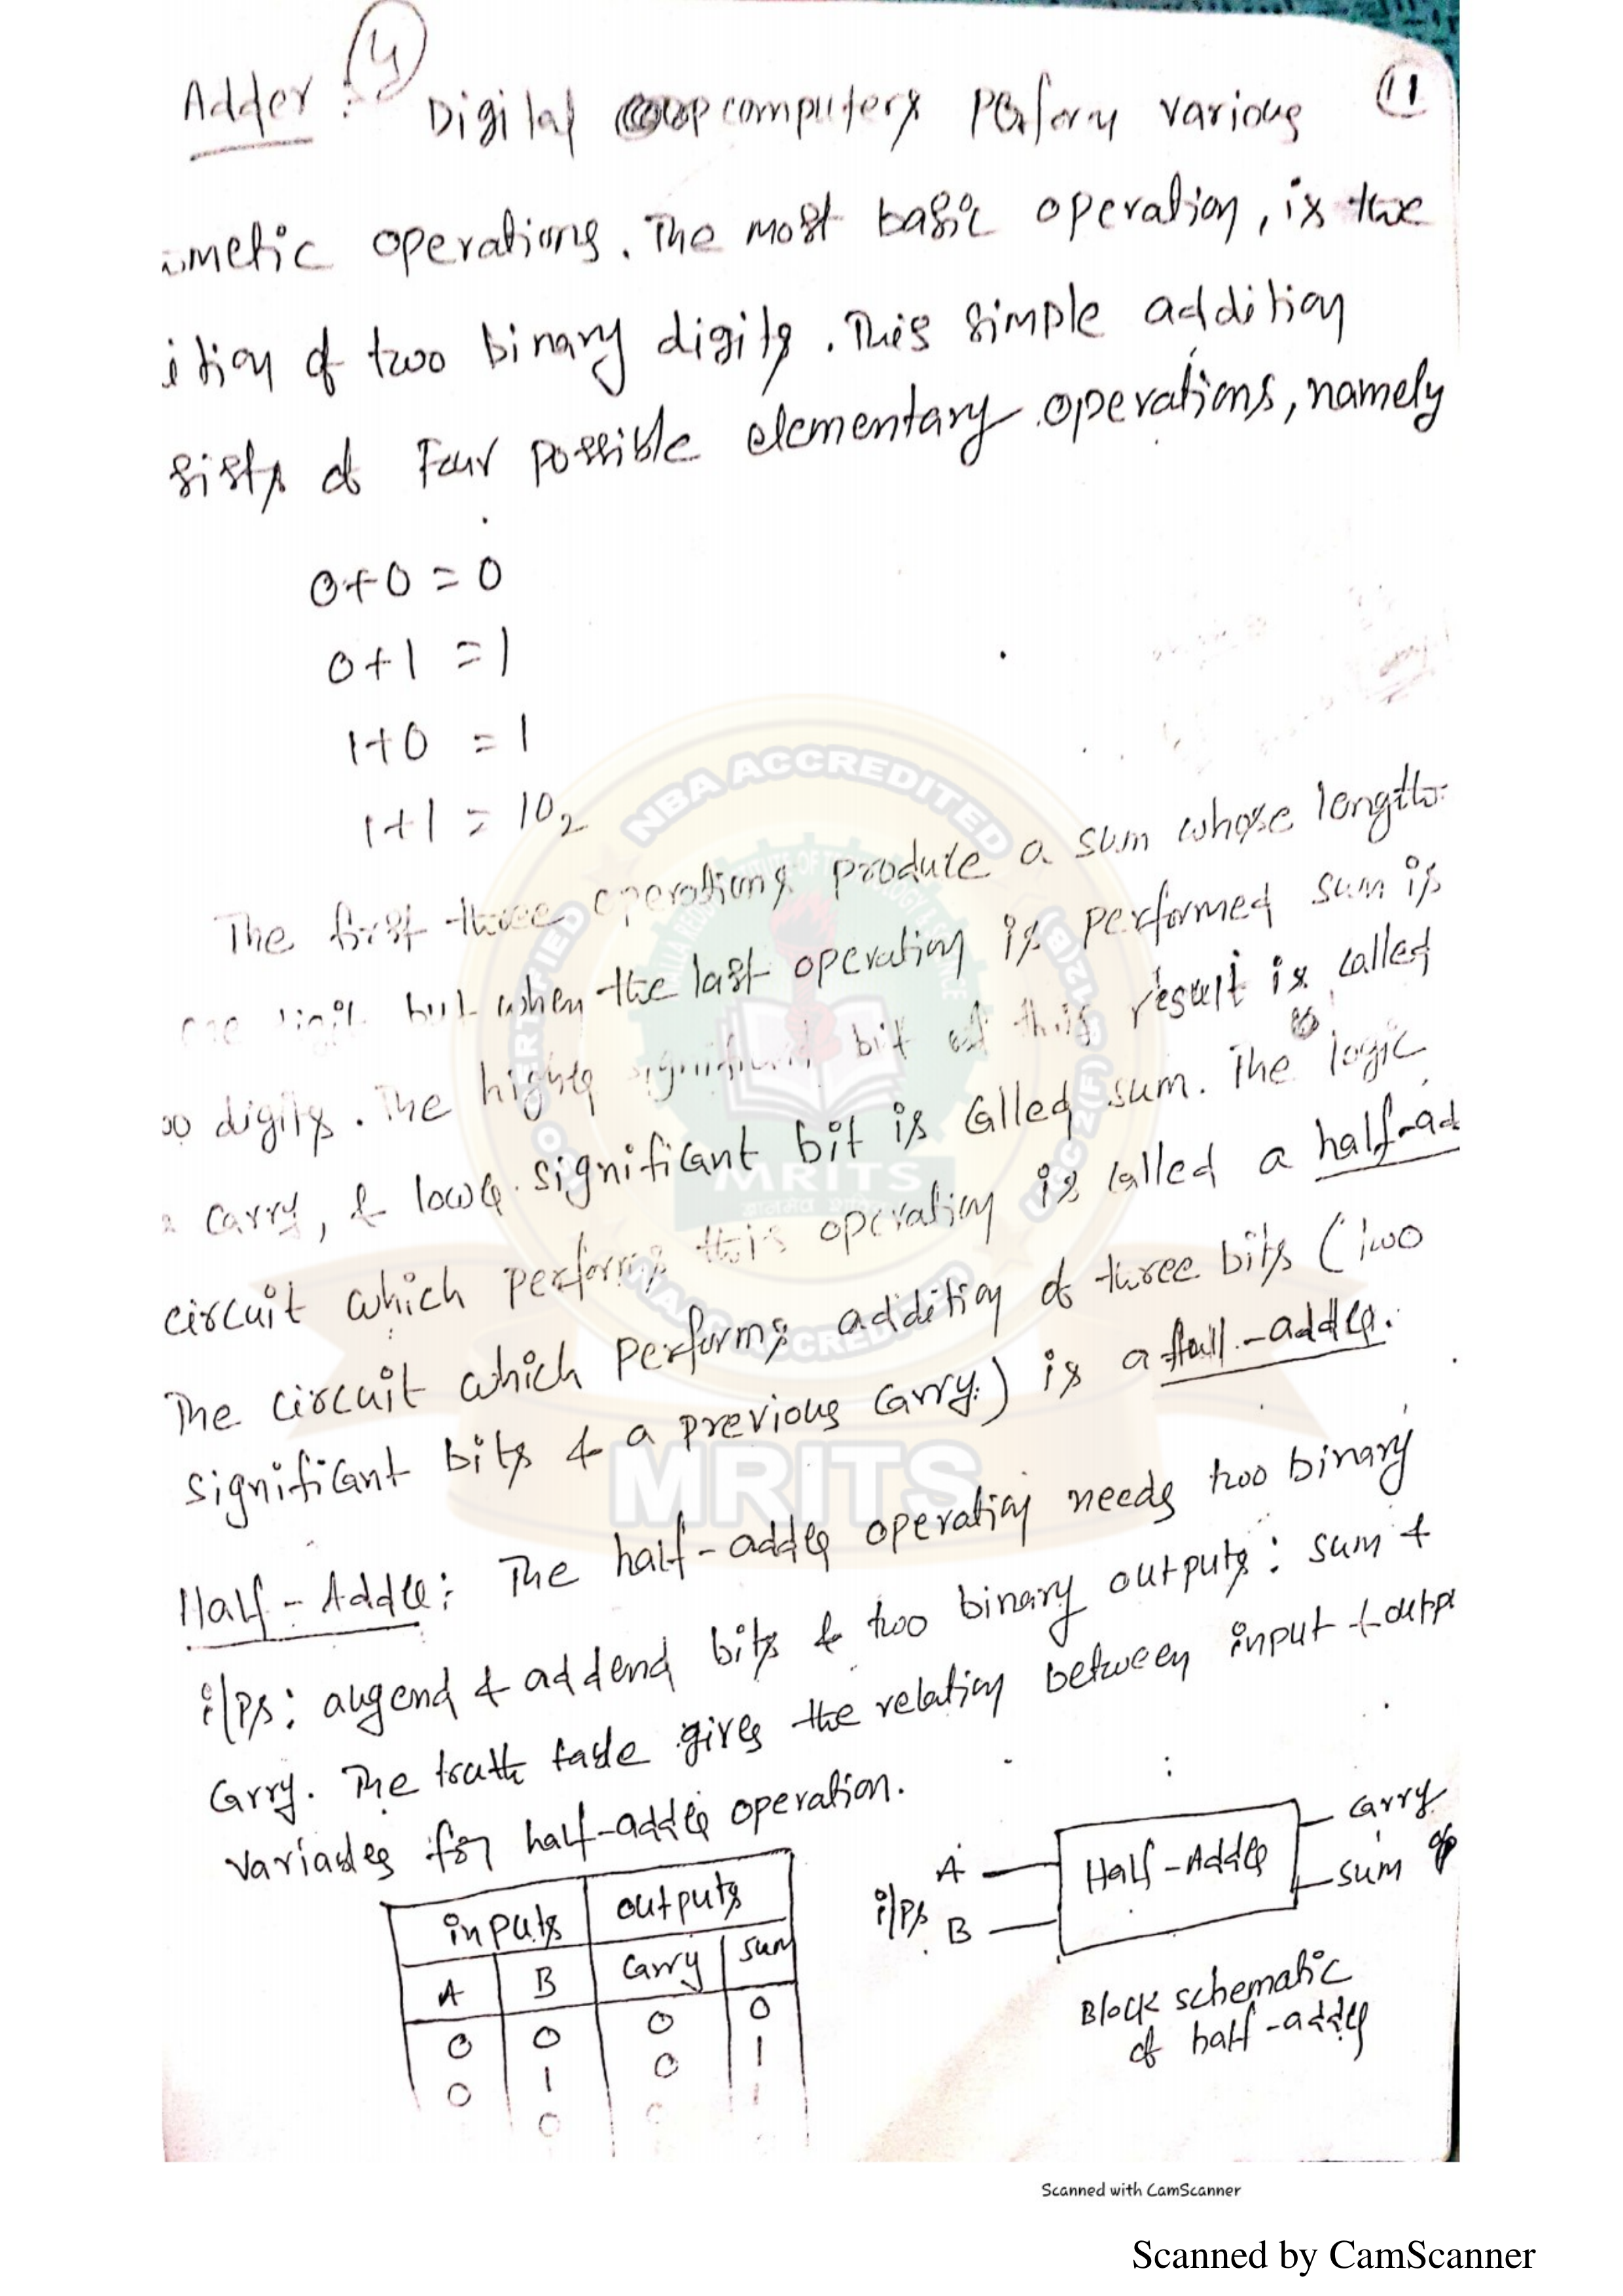 4
11
Adder : Digital computers Perform various
metic operations. The most basic operation, is the
ition of two binary digits. This simple addition
sists of Four possible elementary operations, namely
0+0 = 0
0+1 = 1
1+0 = 1
1+1 = 10₂
The first three operations produce a sum whose length
one digit but when the last operation is performed sum is
digits. The higher significant bit of this result is called
carry, & lower significant bit is called sum. The logic
circuit which performs this operation is called a half-ad
The circuit which performs addition of three bits (Two
significant bits & a previous carry.) is a full-adder.
Half-Adder: The half-adder operation needs two binary
i/Ps: augend & addend bits & two binary outputs: sum &
Carry. The truth table gives the relation between input & outp
variables for half-adder operation.
inputs outputs
A B Carry sum
0 0 0 0
0 1 0 1
0
i/Ps A B
Half-Adder
carry
sum
o/p
Block schematic
of half-adder
NBA ACCREDITED
NAAC ACCREDITED
MRITS
MRITS
Scanned with CamScanner
Scanned by CamScanner